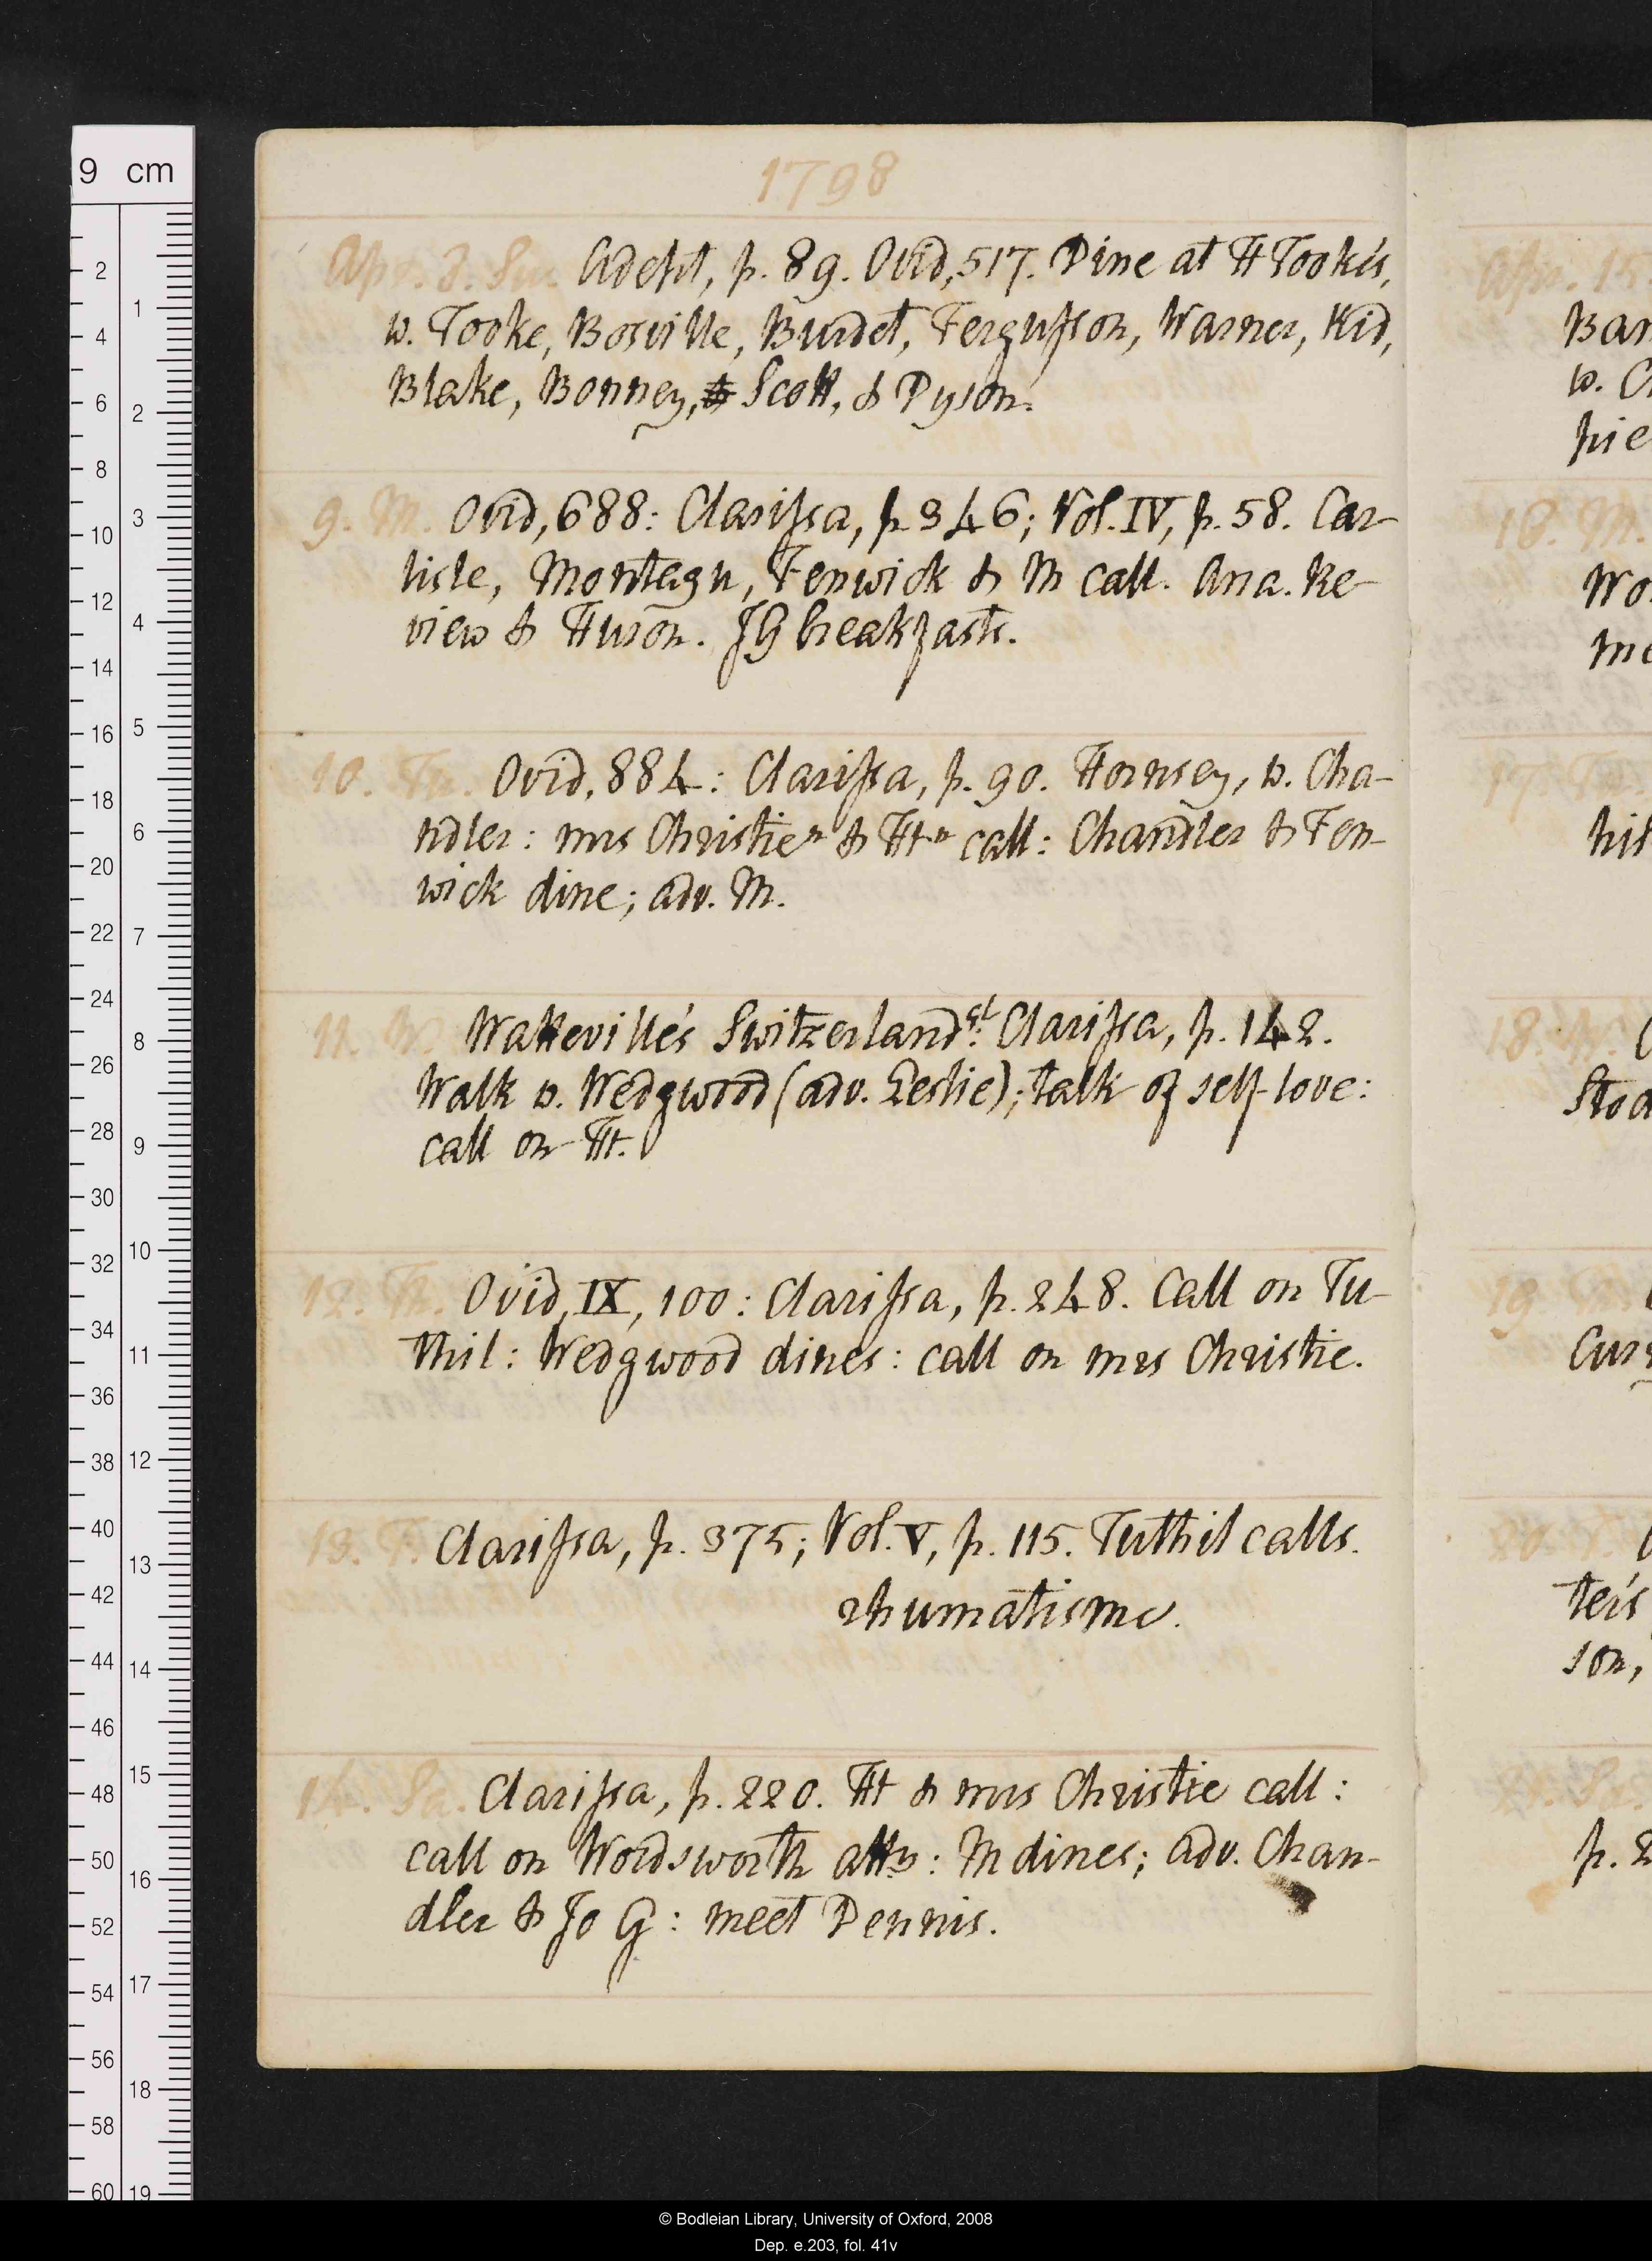 9 cm
1798
Apr. 8. Su. Adept, p. 89. Ovid, 517. Dine at H Took's,
w. Tooke, Bosville, Burdet, Fergusson, Warner, Kid,
Blake, Bonney, & Scott, & Dyson.
9. M. Ovid, 688: Clarissa, p. 346; Vol. IV, p. 58. Car-
lisle, Montagu, Fenwick & M call. Ana. Re-
view & Huron. JG breakfasts.
10. Tu. Ovid, 884: Clarissa, p. 90. Hornsey, w. Cha-
ndler: mrs Christie n & Ht n call: Chandler & Fen-
wick dine; adv. M.
11. W. Watteville's Switzerland çl. Clarissa, p. 142.
Walk w. Wedgwood (adv. Leslie); talk of self-love:
call on Ht.
12. Th. Ovid, IX, 100: Clarissa, p. 248. Call on Tu-
thil: Wedgwood dines: call on mrs Christie.
13. F. Clarissa, p. 375; Vol. V, p. 115. Tuthil calls.
rhumatisme.
14. Sa. Clarissa, p. 220. Ht & mrs Christie call:
call on Wordsworth atty: M dines; adv. Chan-
dler & Jo G: meet Dennis.
Apr. 15.
Bar
w. C
pie
16. M.
Wo
me
17. Tu.
his
18. W.
Stod
19. Th.
Cur
20. F.
ter's
son,
21. Sa.
p. 2
© Bodleian Library, University of Oxford, 2008
Dep. e.203, fol. 41v